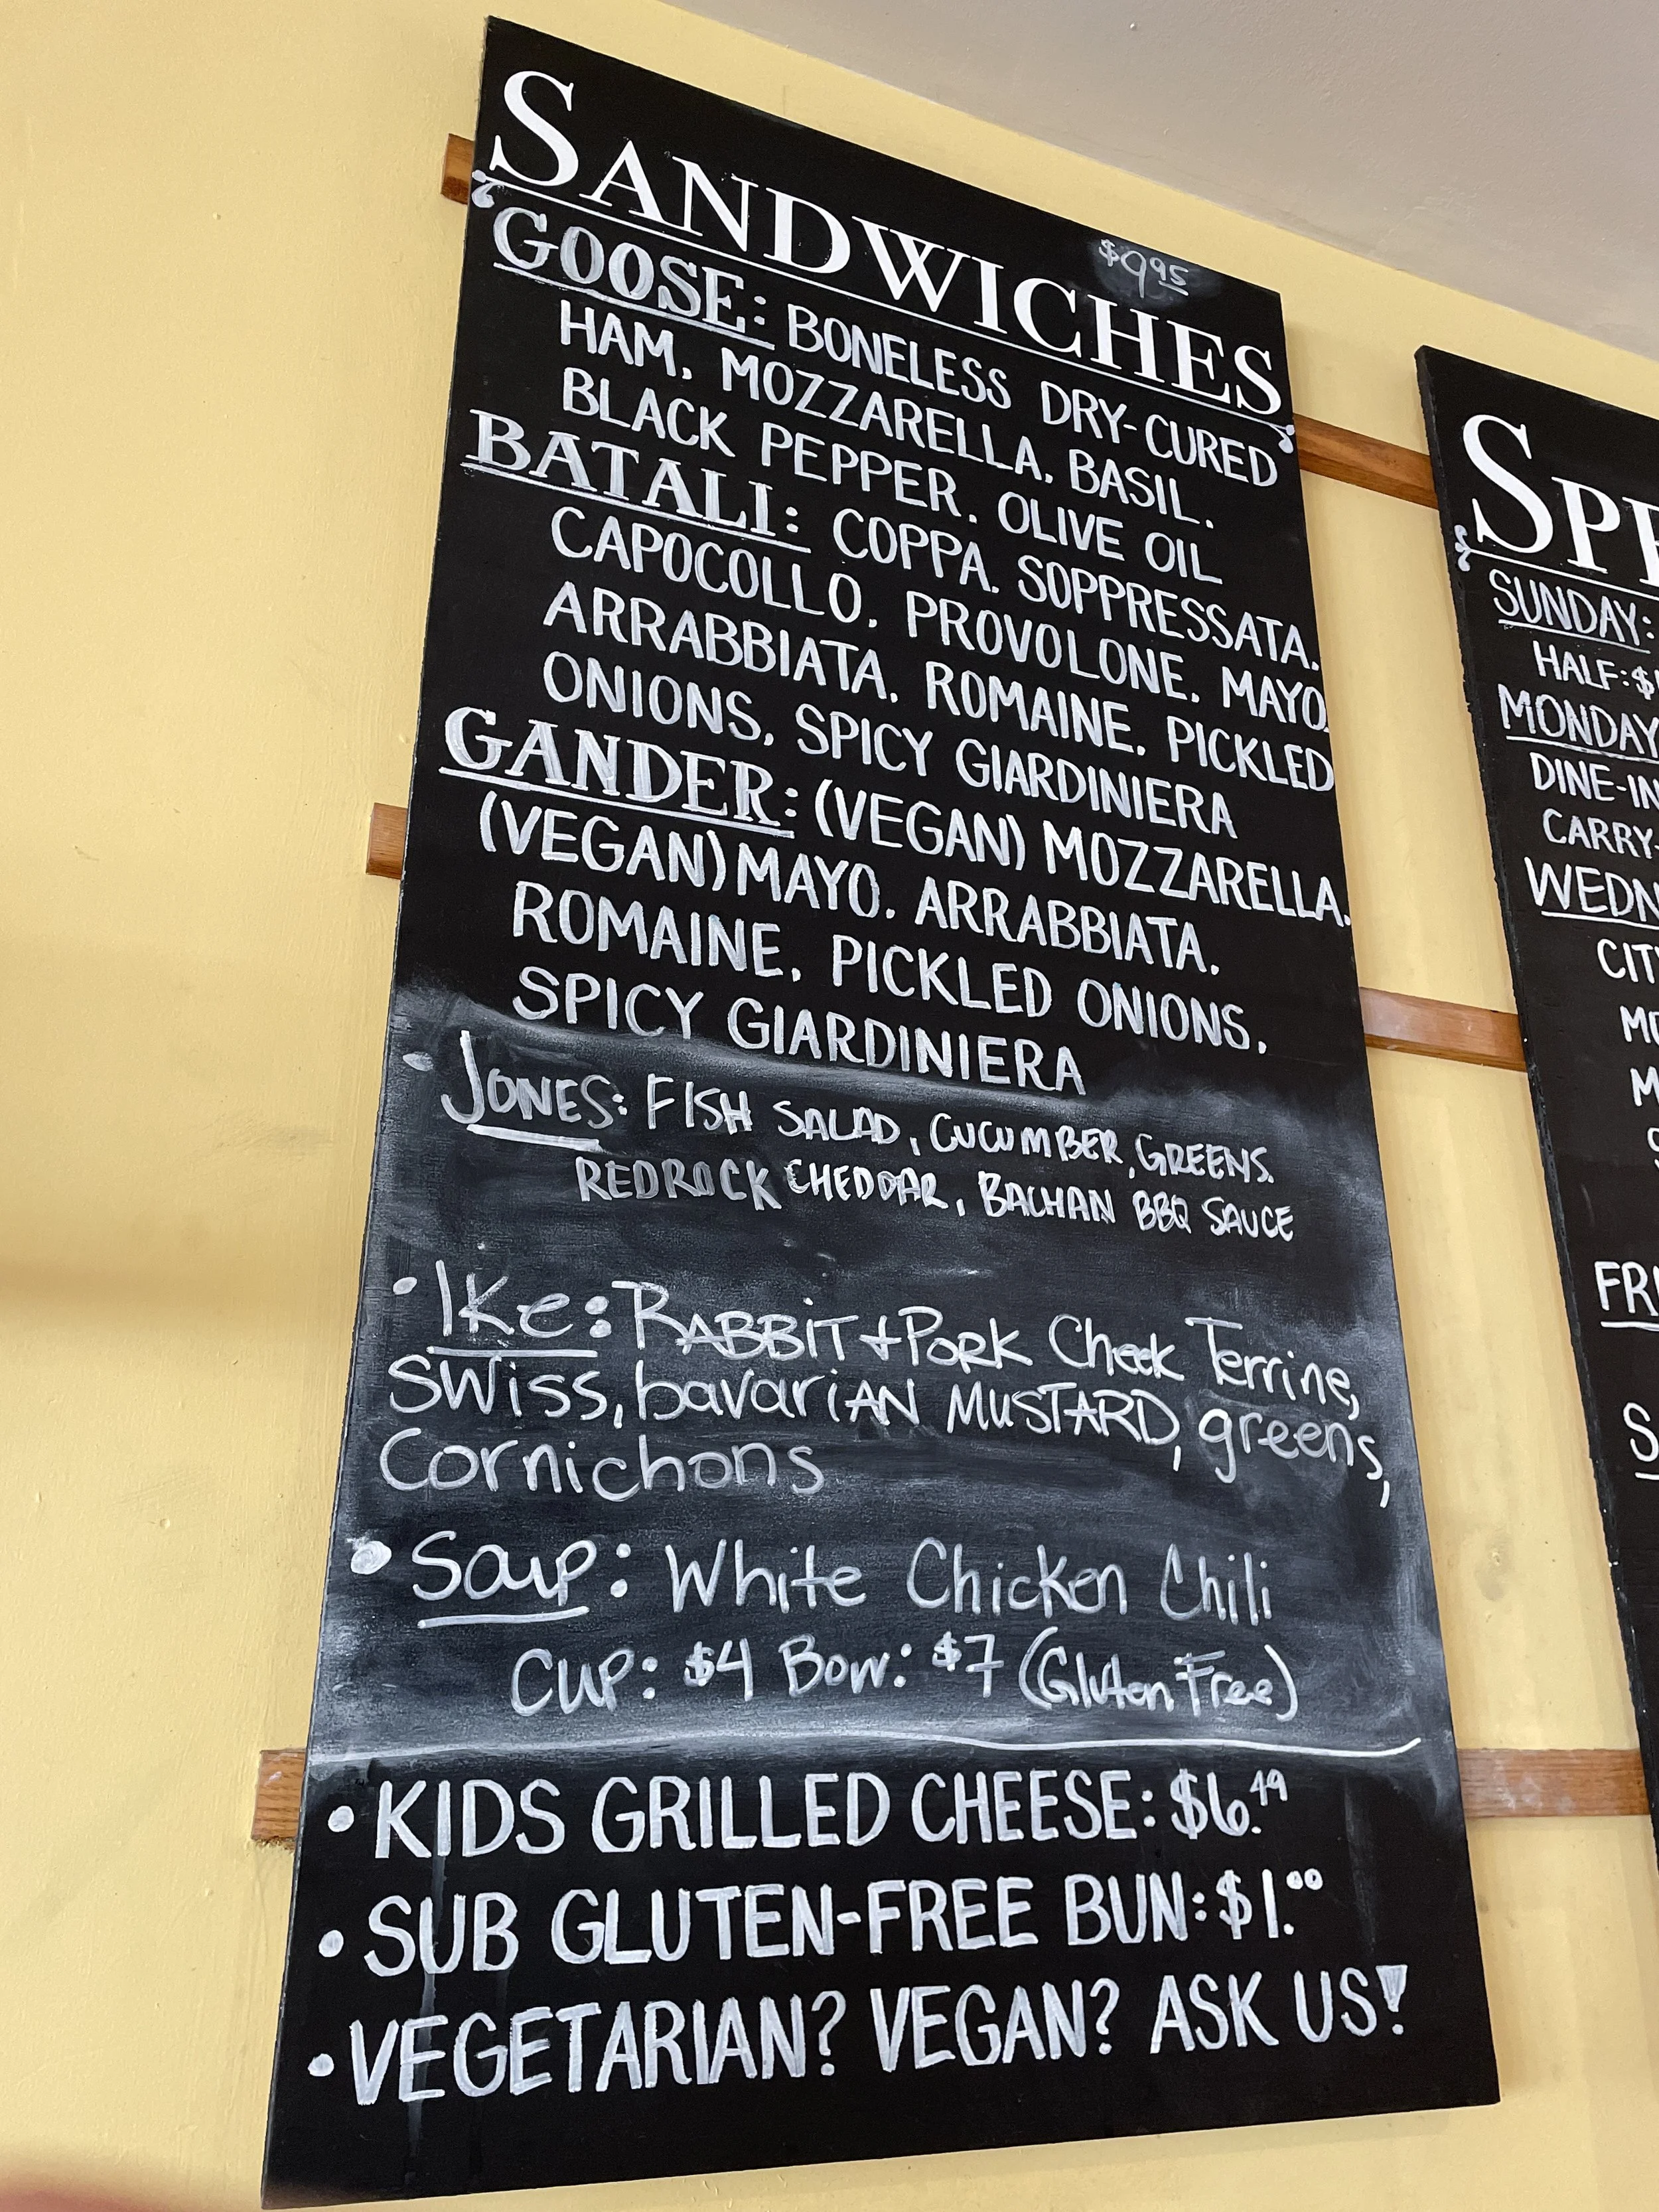 SANDWICHES
$9.95
GOOSE: BONELESS DRY-CURED
HAM, MOZZARELLA, BASIL,
BLACK PEPPER, OLIVE OIL
BATALI: COPPA, SOPPRESSATA,
CAPOCOLLO, PROVOLONE, MAYO,
ARRABBIATA, ROMAINE, PICKLED
ONIONS, SPICY GIARDINIERA
GANDER: (VEGAN) MOZZARELLA,
(VEGAN) MAYO, ARRABBIATA,
ROMAINE, PICKLED ONIONS,
SPICY GIARDINIERA
• JONES: FISH SALAD, CUCUMBER, GREENS,
REDROCK CHEDDAR, BACHAN BBQ SAUCE
• Ike: RABBiT + PORK Cheek Terrine,
SWiss, bavariAN MUSTARD, greens,
Cornichons
• Soup: White Chicken Chili
Cup: $4 Bowl: $7 (Gluten Free)
• KIDS GRILLED CHEESE: $6.49
• SUB GLUTEN-FREE BUN: $1.00
• VEGETARIAN? VEGAN? ASK US!
SPE
SUNDAY:
HALF: $
MONDAY
DINE-IN
CARRY-
WEDN
CIT
M
FRI
S